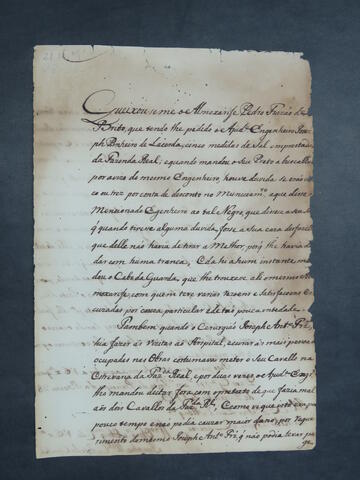 Queixouseme o Almoxarife Pedro Frazão de
Brito, que tendo lhe pedido o Ajud.e Engenheiro Joze
ph Pinheiro de Lacerda, cinco medidas de Sal emprestadas
da Fazenda Real, e quando mandou o Seu Preto a buscallas
por avizo do mesmo Engenheiro, houve duvida se erão
ou trez por conta de desconto no Municiam.to aque disse
Menzionado Egenheiro ao tal Negro, que dicece a seu
q quando tivece alguma duvida, fosse a sua caza
que delle não havia de tirar a Melhor, porq lhe havia
dar com huma tranca, E dahi a hum instante man
dou o Cabo da Guarda, que lhe trouxece ali o mesmo
moxarife, com quem teve varias razoens e Satisfacoens
cuzadas por couza particular e de taõ pouca entedade.
Tambem quando o Cirurgiaõ Joseph Ant.o Prz,
hia fazer as vizitas ao Hospital, e curar os mais
ocupados nas Obras costumava meter o Seu Cavallo na
Estrebaria da Faz.da Real, e por duas vezes o Ajud.e
lho mandou deitar fora com o pretexto de que fazia mal
aos dois Cavallos da Faz.da Rl, E como
pouco tempo e não podia cauzar maior dano, por
rimento do mesmo Joseph Ant.o Prz, q não podia